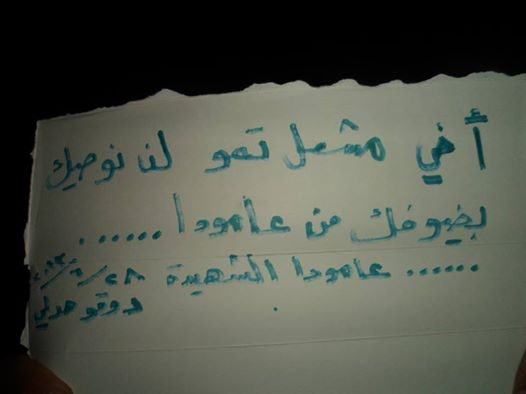 أخي مشعل تمو لن نوصيك
بضيوفك من عامودا ......
...... عامودا الشهيدة ٢٨/٦/٢٠١٣